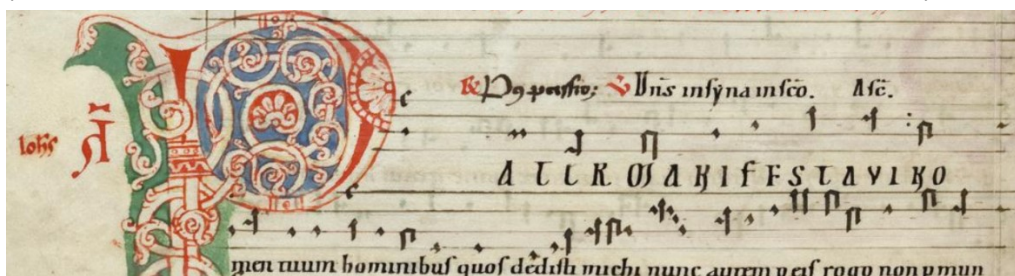 ℟ Pꝰ passio; ℣ Dn̄s in syna in sc̄o. Asc̄.
Ioħs
PATER MANIFESTAVI NO
men tuum hominibus quos dedisti michi nunc autem p eis rogo non p mun